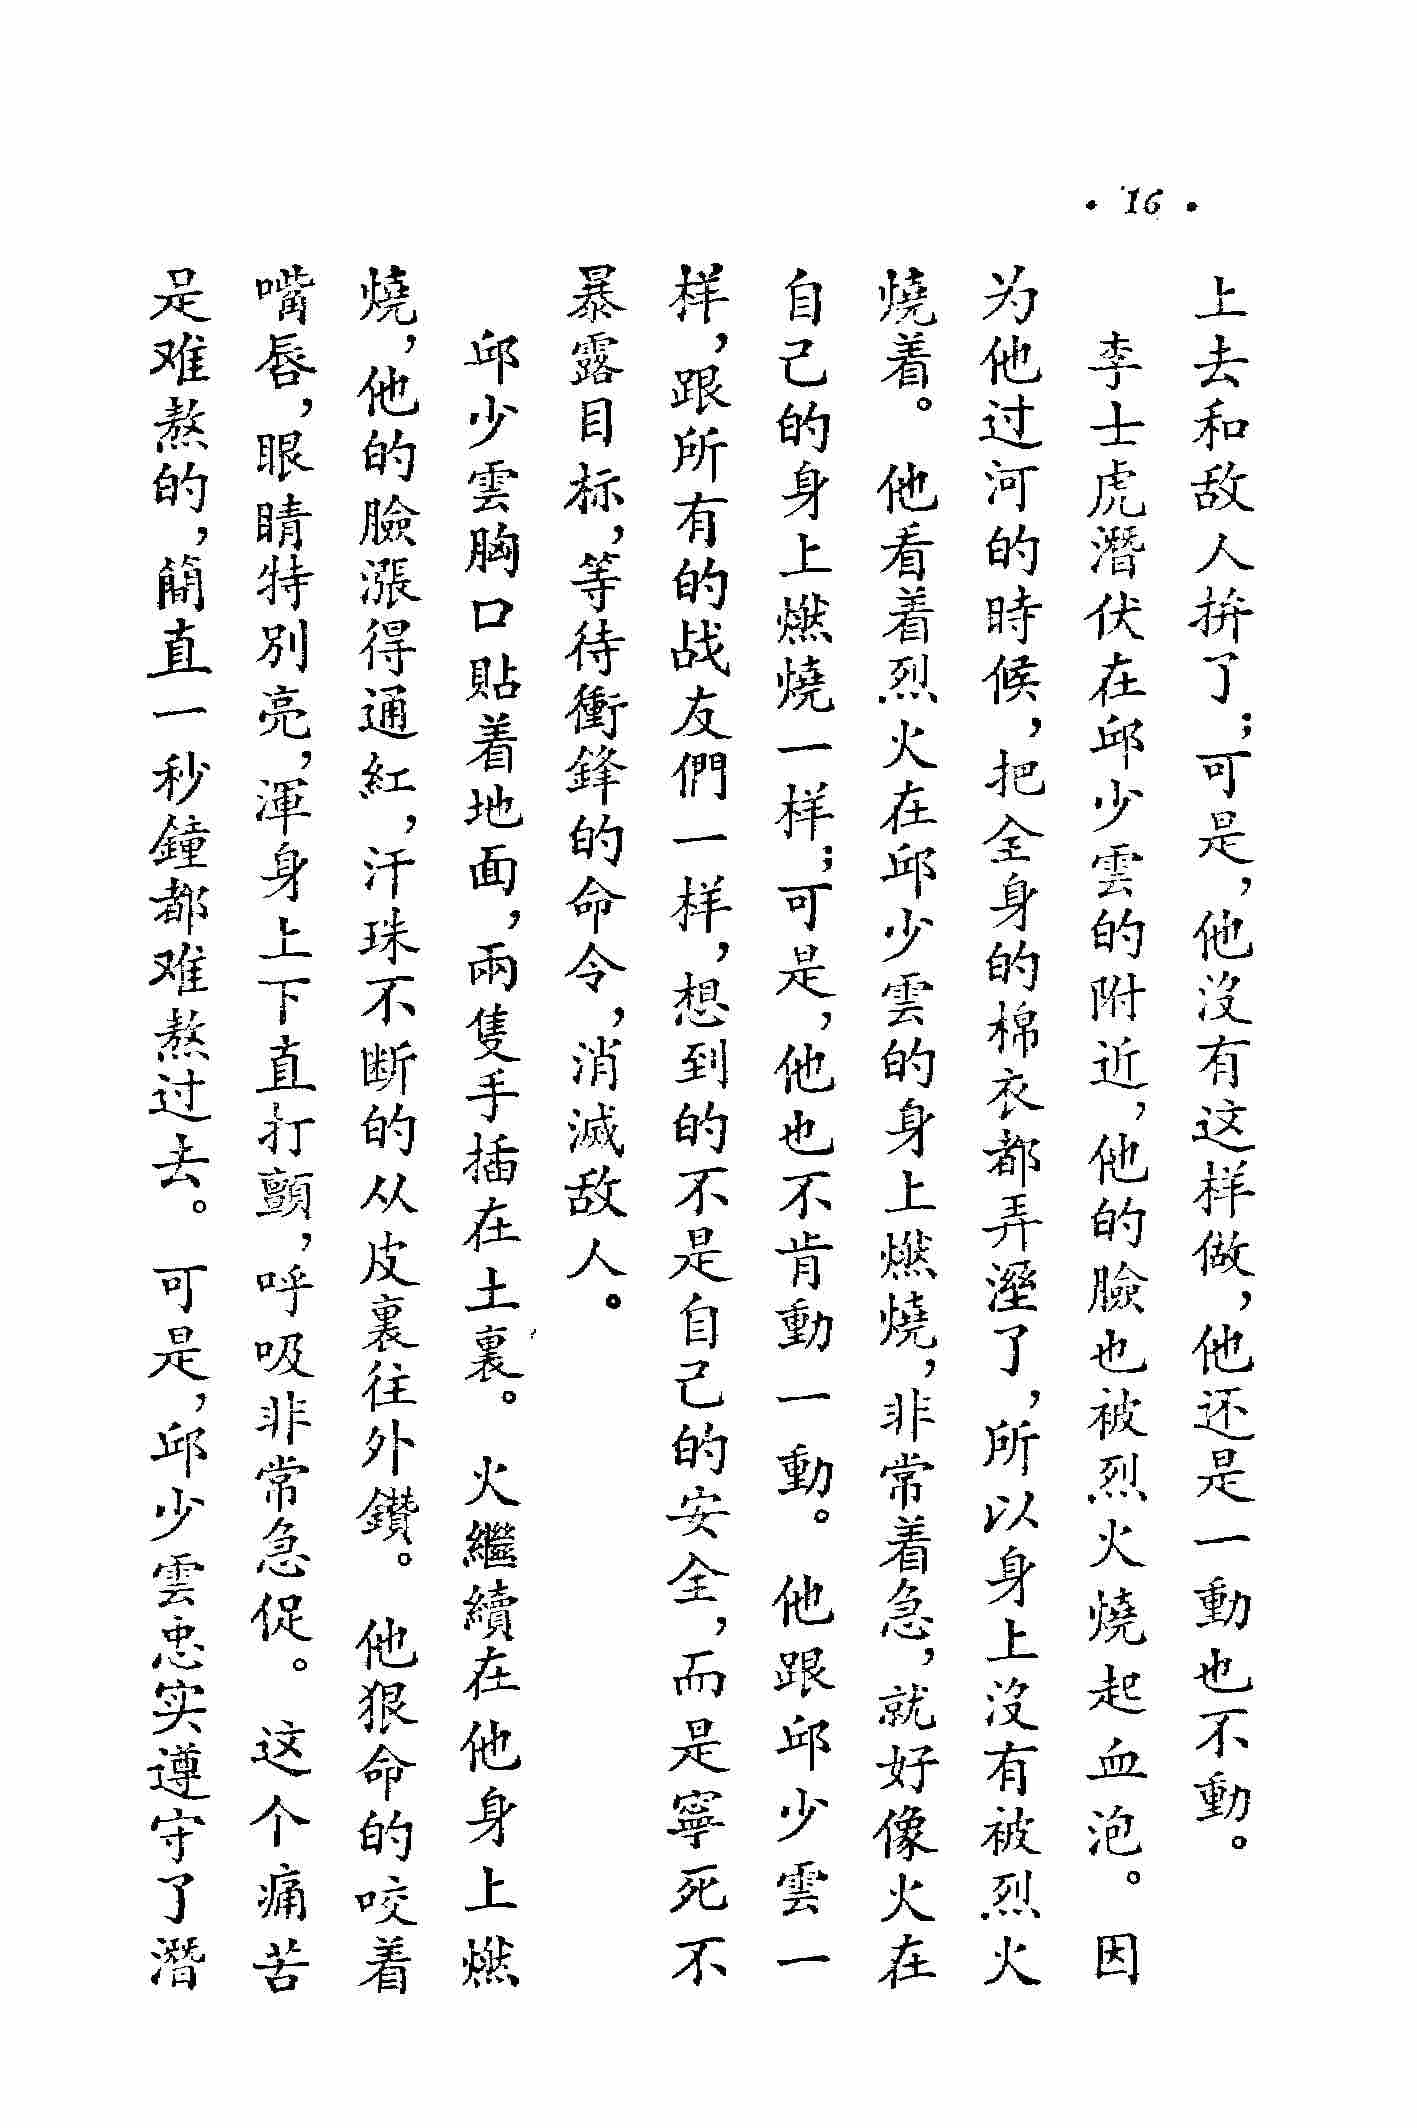 • 16 •
上去和敌人拚了；可是，他沒有这样做，他还是一動也不動。
李士虎潛伏在邱少雲的附近，他的臉也被烈火燒起血泡。因
为他过河的時候，把全身的棉衣都弄溼了，所以身上沒有被烈火
燒着。他看着烈火在邱少雲的身上燃燒，非常着急，就好像火在
自己的身上燃燒一样；可是，他也不肯動一動。他跟邱少雲一
样，跟所有的战友們一样，想到的不是自己的安全，而是寧死不
暴露目标，等待衝鋒的命令，消滅敌人。
邱少雲胸口貼着地面，兩隻手插在土裏。火繼續在他身上燃
燒，他的臉漲得通紅，汗珠不断的从皮裏往外鑽。他狠命的咬着
嘴唇，眼睛特別亮，渾身上下直打顫，呼吸非常急促。这个痛苦
是难熬的，簡直一秒鐘都难熬过去。可是，邱少雲忠实遵守了潛